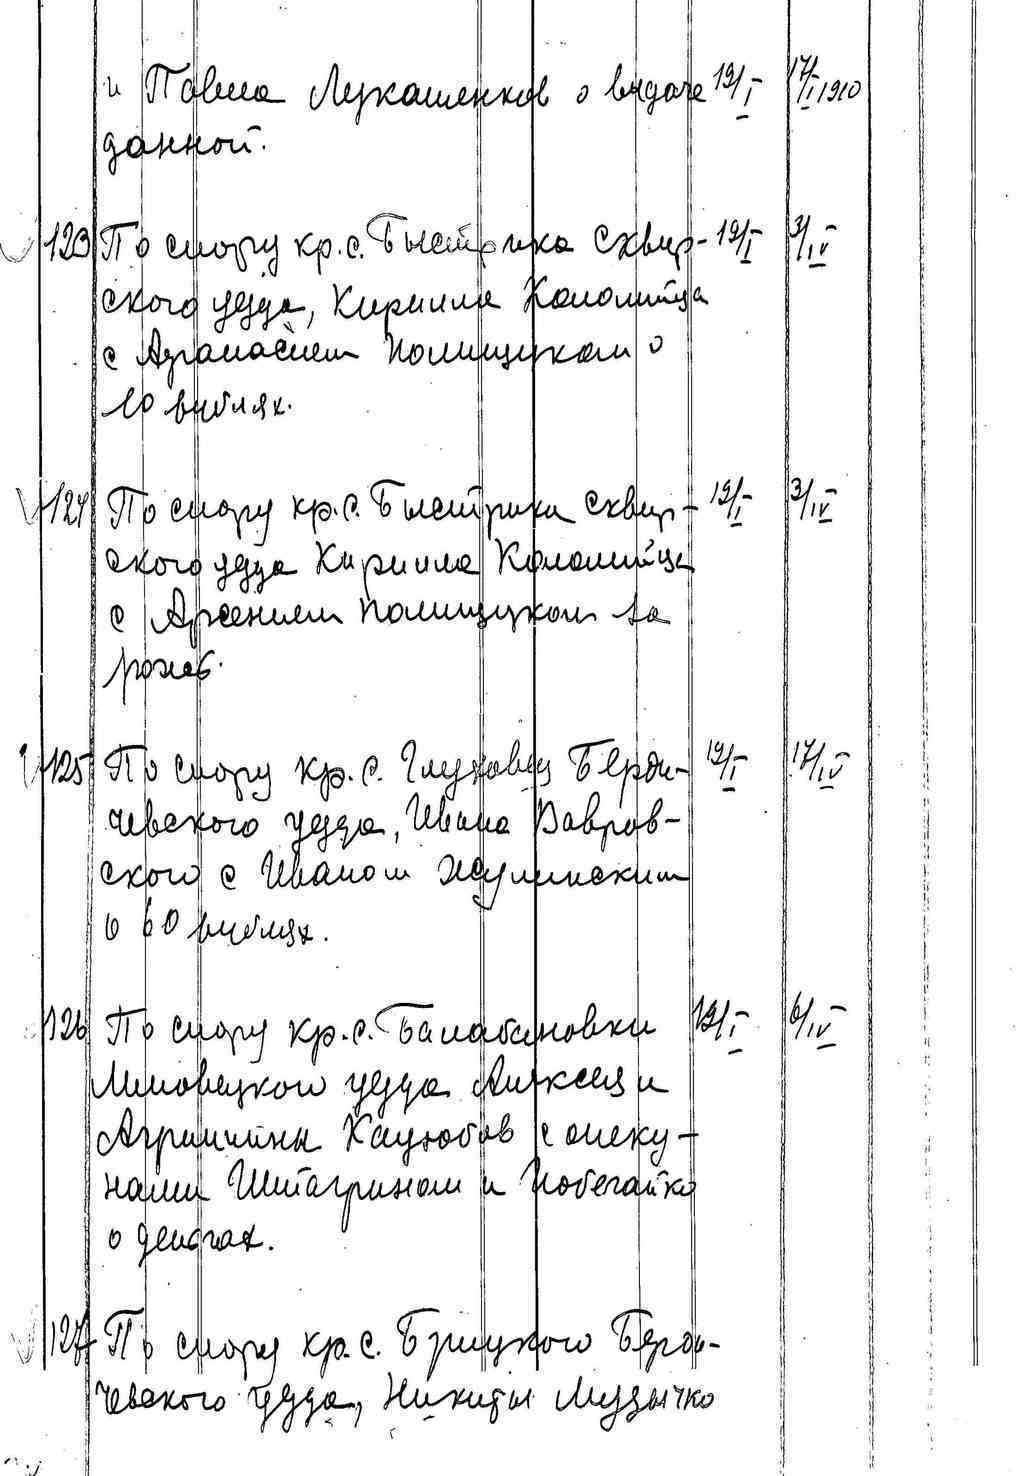 и Павла Лукашенков о выдаче 19/I 17/I 1910
данной.
123 По спору кр. с. Быстрика Сквир- 19/I 3/IV
ского уезда, Кирилла Коломийца
с Афанасием Полищуком о
10 рублях.
124 По спору кр. с. Быстрика Сквир- 19/I 3/IV
ского уезда Кирилла Коломийца
с Арсением Полищуком за
рожь.
125 По спору кр. с. Глуховец Берди- 19/I 17/IV
чевского уезда, Ивана Вавров-
ского с Иваном Жулинским
о 60 рублях.
126 По спору кр. с. Балабановки 19/I 6/IV
Липовецкого уезда Алексея и
Агриппины Кацюбов с опеку-
нами Штагрином и Побегайко
о деньгах.
127 По спору кр. с. Брицкого Берди-
чевского уезда, Никиты Музычко